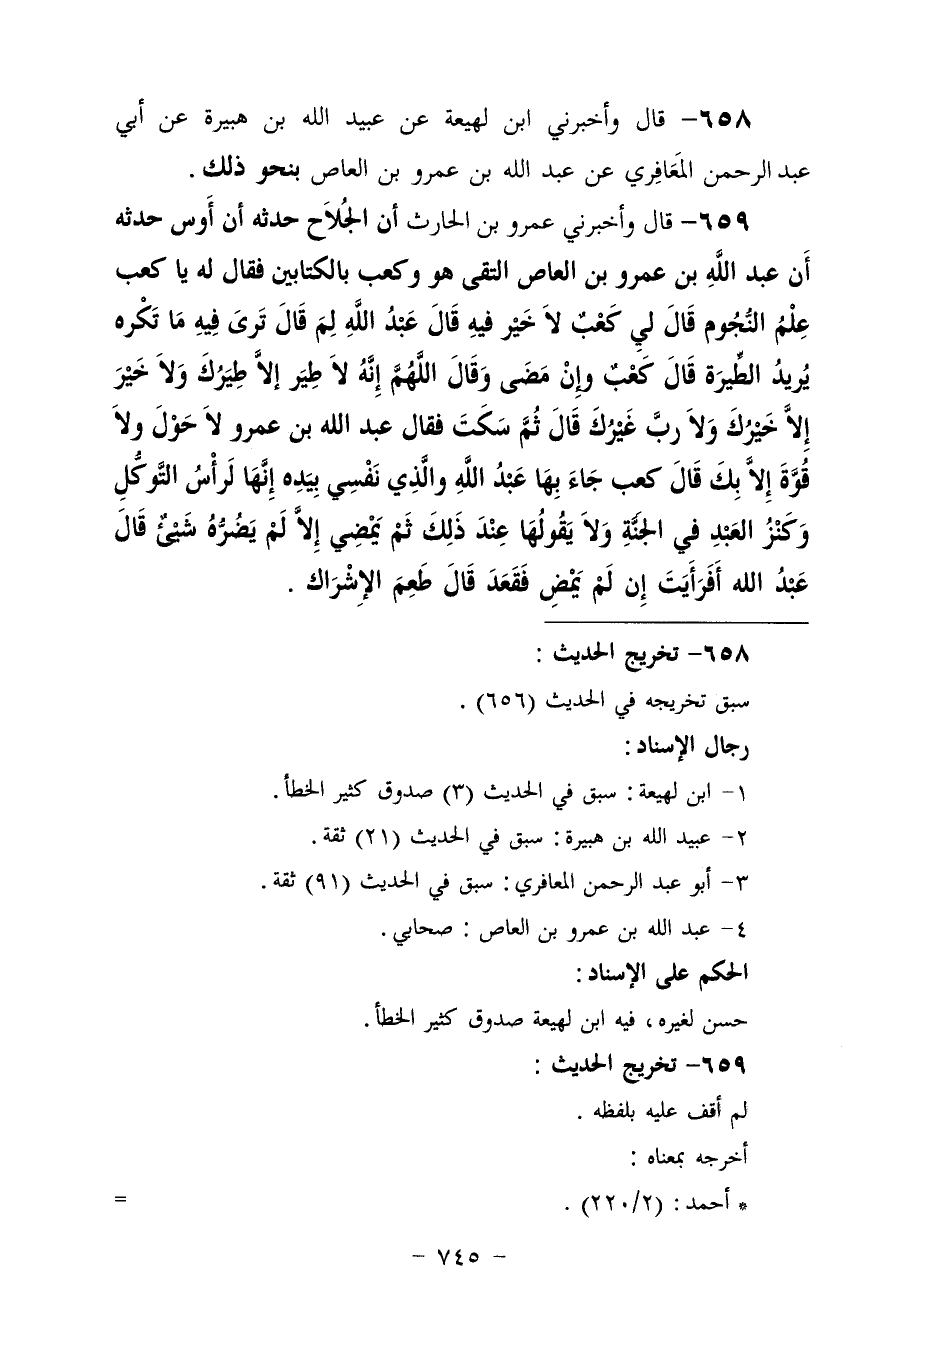 ٦٥٨– قال وأخبرني ابن لهيعة عن عبيد الله بن هبيرة عن أبي
عبد الرحمن المَعَافِري عن عبد الله بن عمرو بن العاص بنحو ذلك .
٦٥٩– قال وأخبرني عمرو بن الحارث أن الجُلاَح حدثه أن أَوس حدثه
أَن عبد اللَّهِ بن عمرو بن العاص التقى هو وكعب بالكتابين فقال له يا كعب
عِلْمُ النُّجُوم قَالَ لي كَعْبٌ لاَ خَيْر فيهِ قَالَ عَبْدُ اللهِ لِمَ قَالَ تَرىَ فِيهِ مَا تَكْره
يُريدُ الطِّيرَة قَالَ كَعْبٌ وإِنْ مَضَى وَقَالَ اللَّهُمَّ إِنَّهُ لاَ طِيَر إِلاَّ طِيَرُكَ وَلاَ خَيْرَ
إِلاَّ خَيْرُكَ وَلاَ ربَّ غَيْرُكَ قَالَ ثُمَّ سَكَتَ فقال عبد الله بن عمرو لاَ حَوْلَ ولاَ
قُوَّةَ إِلاَّ بِكَ قَالَ كعب جَاءَ بِهَا عَبْدُ اللَّهِ والَّذِي نَفْسِي بِيَدِه إِنَّهَا لَرأْسُ التَّوكُّلِ
وَكَنْزُ العَبْدِ في الجَنَّةِ وَلاَ يَقُولُهَا عِنْدَ ذَلِكَ ثَمْ يَمْضِي إِلاَّ لَمْ يَضُرُّهُ شَيْئٌ قَالَ
عَبْدُ الله أَفَرَأَيَتَ إِن لَمْ يَمْضِ فَقَعَدَ قَالَ طَعِمَ الإِشْرَاك .
٦٥٨– تخريج الحديث :
سبق تخريجه في الحديث (٦٥٦) .
رجال الإسناد :
١– ابن لهيعة : سبق في الحديث (٣) صدوق كثير الخطأ .
٢– عبيد الله بن هبيرة : سبق في الحديث (٢١) ثقة .
٣– أبو عبد الرحمن المعافري : سبق في الحديث (٩١) ثقة .
٤– عبد الله بن عمرو بن العاص : صحابي .
الحكم على الإسناد :
حسن لغيره ، فيه ابن لهيعة صدوق كثير الخطأ .
٦٥٩– تخريج الحديث :
لم أقف عليه بلفظه .
أخرجه بمعناه :
* أحمد : (٢٢٠/٢) . =
– ٧٤٥ –